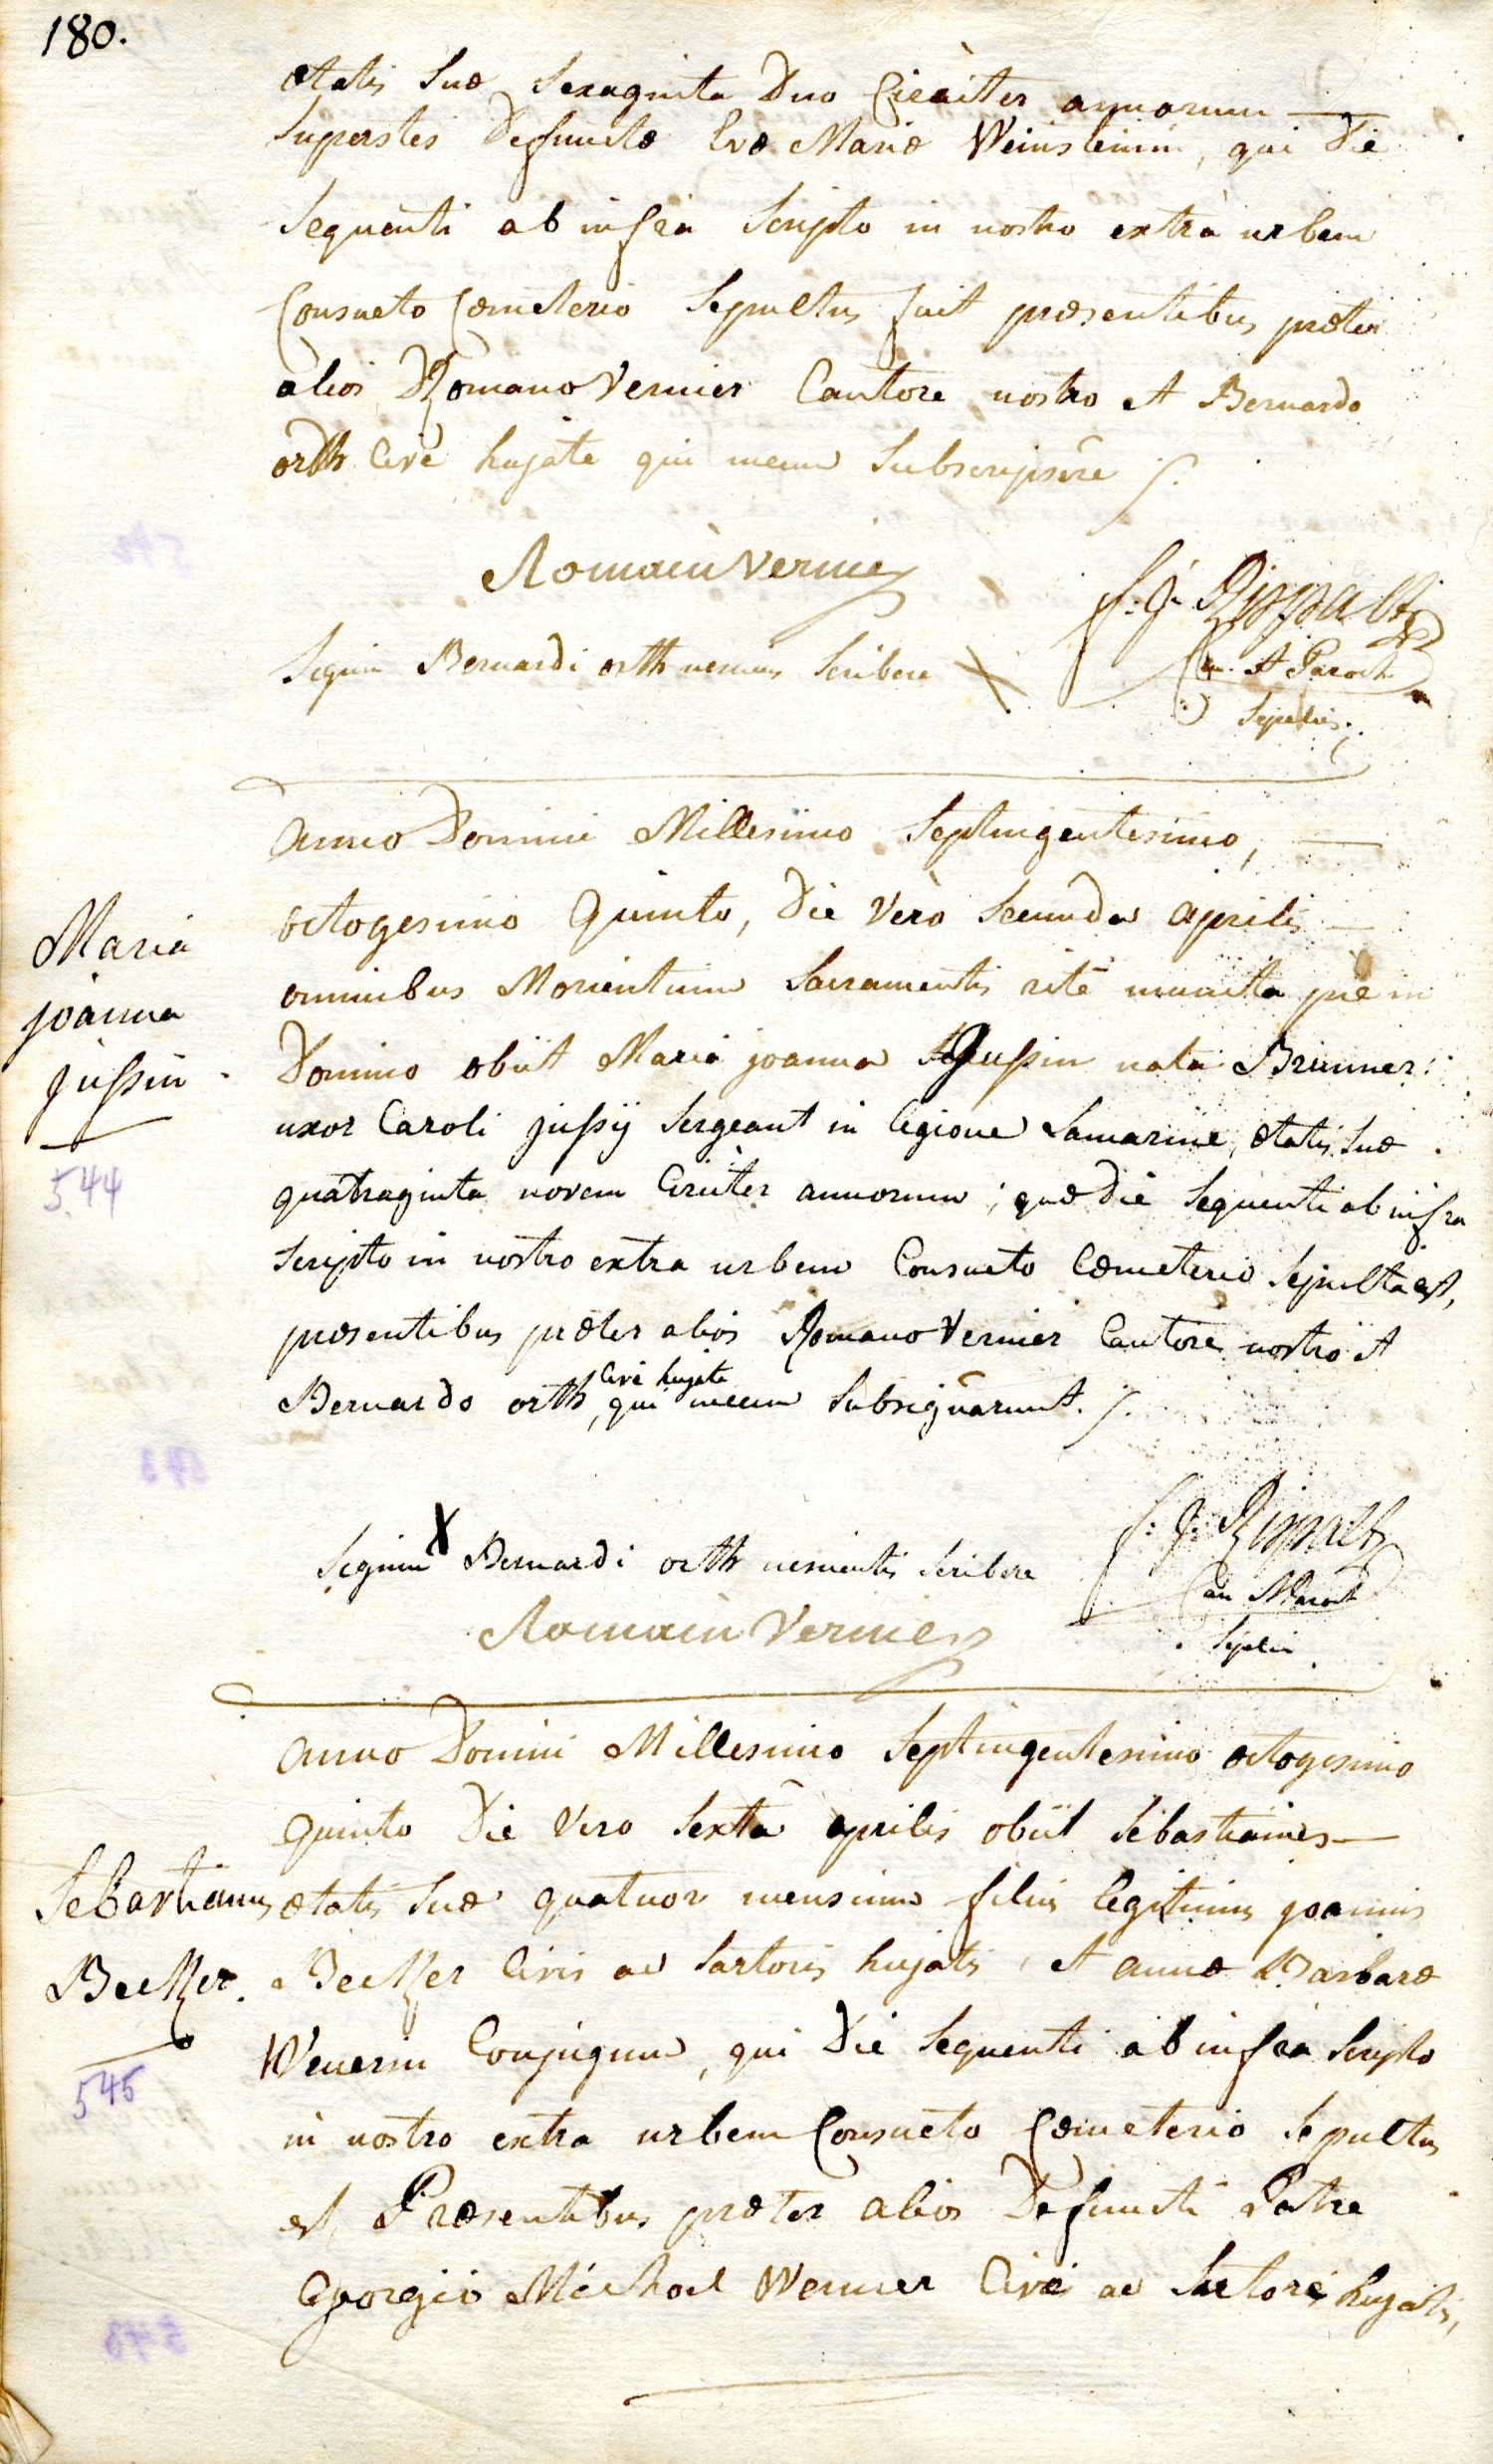 180.
ætatis suæ sexaginta duo circiter annorum
superstes defunctæ Evæ Mariæ Weinsteinin, qui die
sequenti ab infra scripto in nostro extra urbem
Consueto Cœmeterio sepultus fuit præsentibus præter
alios Romano Vernier Cantore nostro et Bernardo
orth Cive hujate qui mecum subscripsere ./.
Romain Vernier
f: j: Rippaltz
Signum Bernardi orth nescientis scribere X
Can. et Paroch
sepelivi
Anno Domini Millesimo Septingentesimo,
octogesimo Quinto, Die vero secunda aprilis
Maria
joanna
jußin
544
omnibus Morientium Sacramentis rite munita pie in
Domino obiit Maria joanna Jußin nata Brunner
uxor Caroli jußÿ sergeant in legione Lamarine, ætatis suæ
quatraginta novem Circiter annorum; quæ die sequenti ab infra
scripto in nostro extra urbem Consueto Cœmeterio sepulta est,
præsentibus præter alios Romano Vernier Cantore nostro et
Bernardo orth, cive hujate qui mecum subsignarunt. ./.
f: j: Rippaltz
Signum X Bernardi orth nescientis scribere
Can et Paroch
Romain Vernier
sepelivi
Anno Domini Millesimo Septingentesimo octogesimo
Quinto Die vero sexta aprilis obiit Sebastianus
Sebastianus
Becker.
545
ætatis suæ quatuor mensium filius legitimus joannis
Becker Civis ac sartoris hujatis, et annæ Barbaræ
Wenerin Conjugum, qui Die sequenti ab infra scripto
in nostro extra urbem Consueto Cœmeterio sepultus
est Præsentibus præter alios Defuncti Patre
Georgio Michael Wenner Cive ac Sutore hujatis,